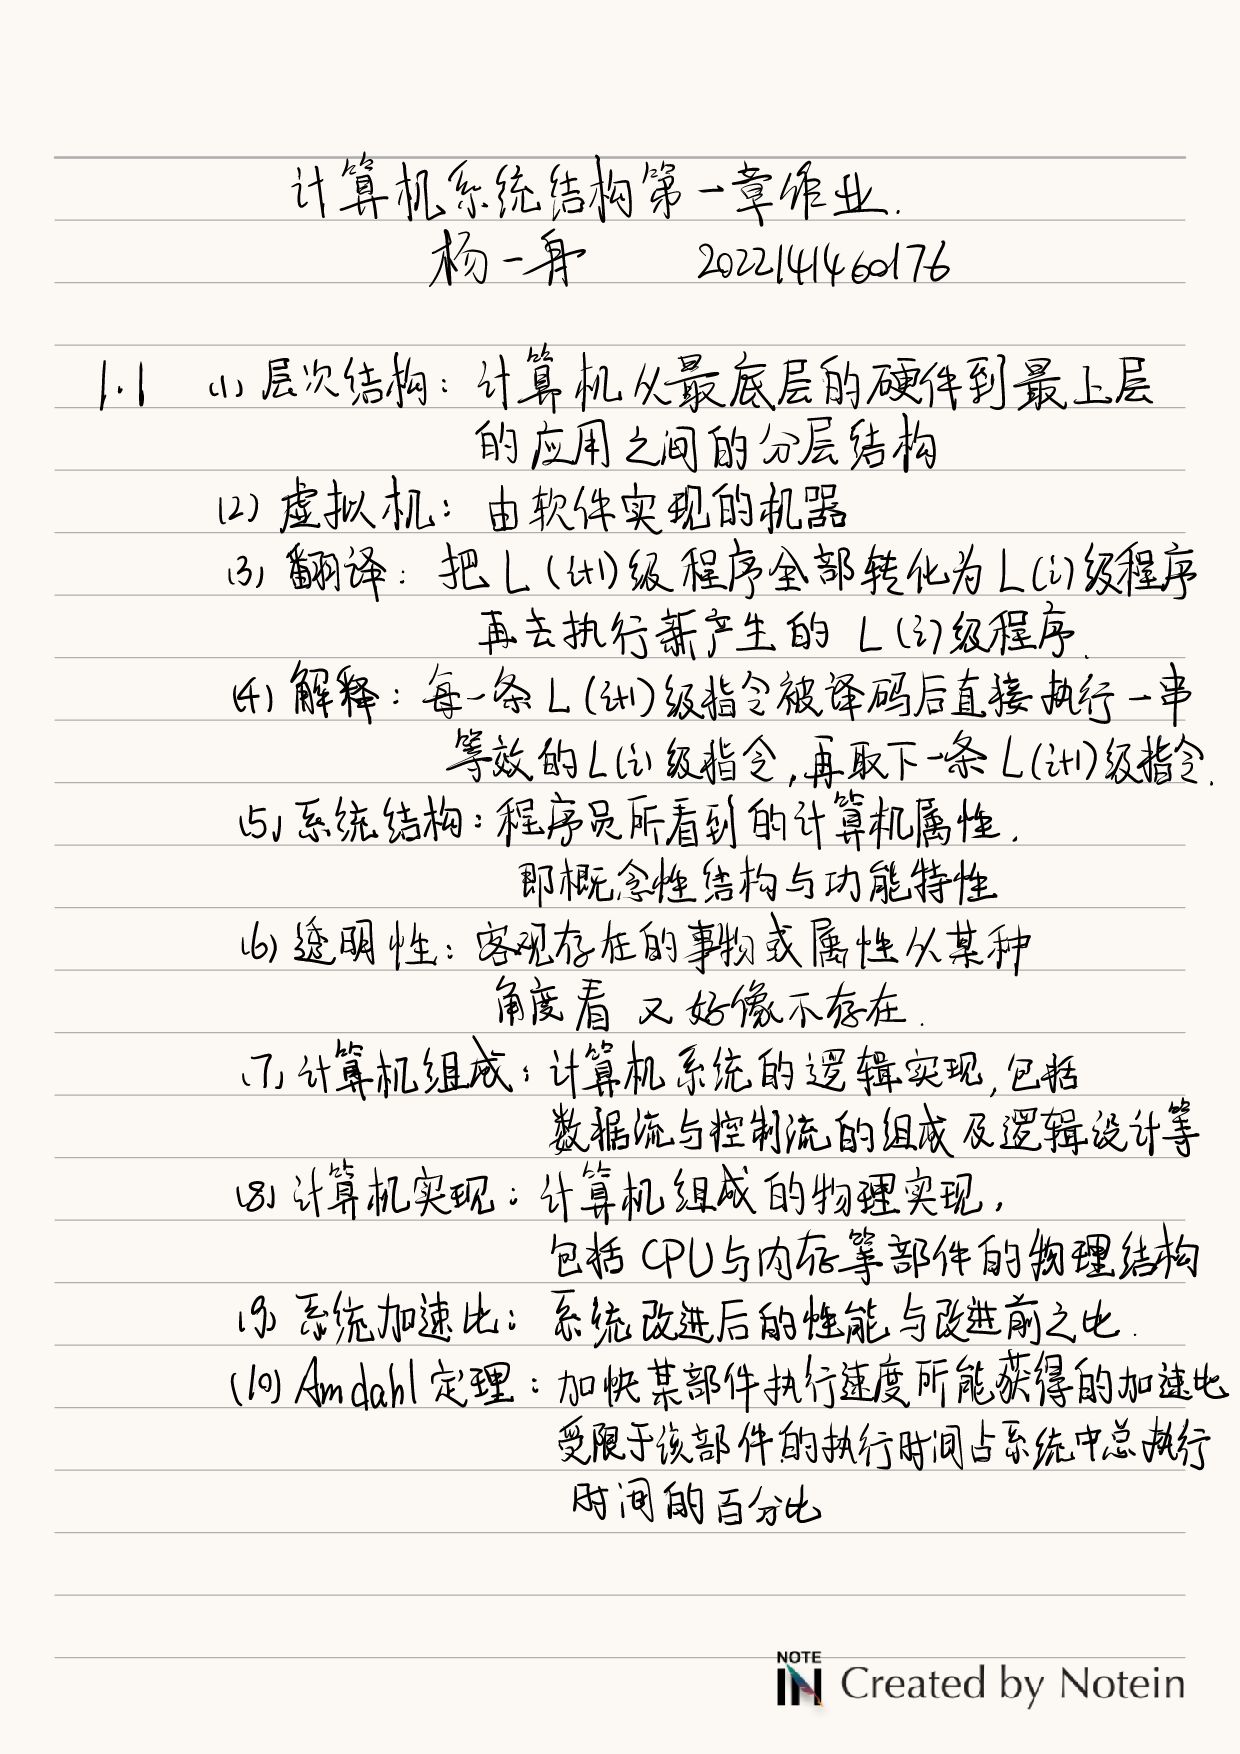 计算机系统结构第一章作业.
杨一舟 2022141460176
1.1 (1) 层次结构: 计算机从最底层的硬件到最上层
的应用之间的分层结构
(2) 虚拟机: 由软件实现的机器
(3) 翻译: 把 L(i+1)级程序全部转化为L(i)级程序
再去执行新产生的 L(i)级程序.
(4) 解释: 每一条L(i+1)级指令被译码后直接执行一串
等效的L(i)级指令,再取下一条L(i+1)级指令.
(5) 系统结构: 程序员所看到的计算机属性.
即概念性结构与功能特性
(6) 透明性: 客观存在的事物或属性从某种
角度看 又好像不存在.
(7) 计算机组成: 计算机系统的逻辑实现,包括
数据流与控制流的组成及逻辑设计等
(8) 计算机实现: 计算机组成的物理实现,
包括CPU与内存等部件的物理结构
(9) 系统加速比: 系统改进后的性能与改进前之比.
(10) Amdahl定理: 加快某部件执行速度所能获得的加速比
受限于该部件的执行时间占系统中总执行
时间的百分比
NOTE
IN Created by Notein